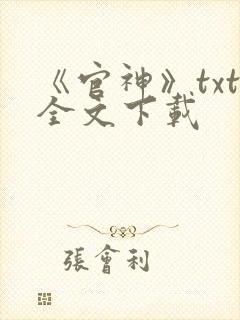 《官神》txt
全文下載
張會利